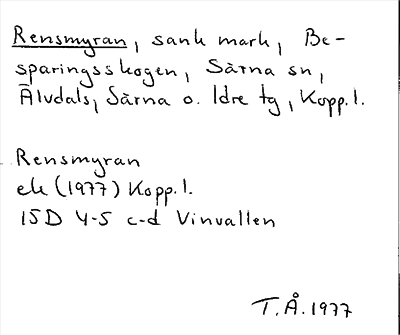 Rensmyran, sank mark, Be-
sparingsskogen, Särna sn,
Älvdals, Särna o. Idre tg, Kopp.l.
Rensmyran
ek (1977) Kopp.l.
15D 4-5 c-d Vinvallen
T.Å. 1977